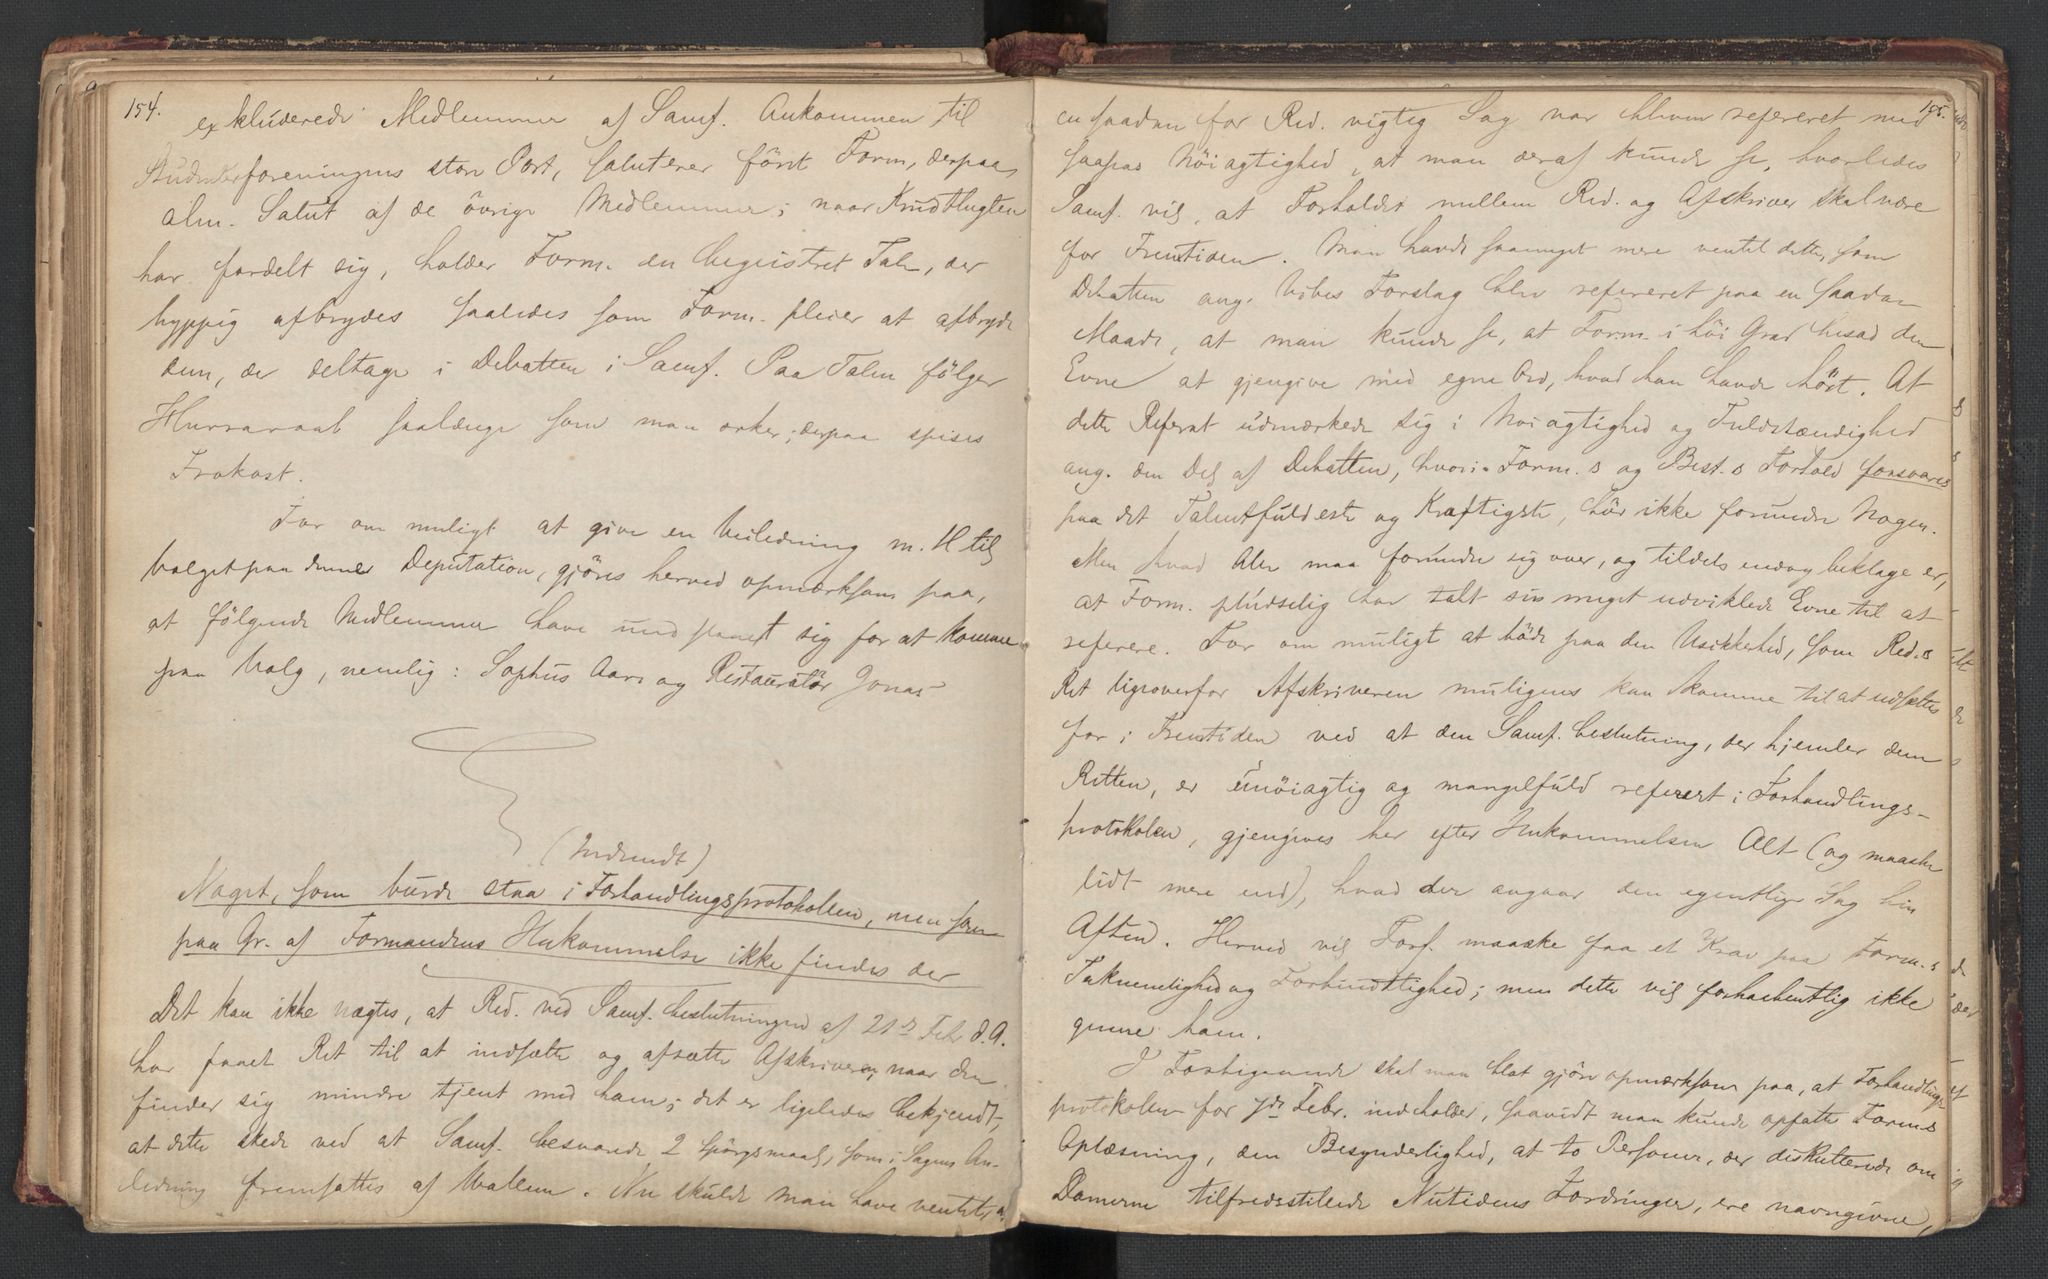 154.
exkluderede Medlemmer af Samf. Ankommen til
Studenterforeningens store Port, saluterer først Form, derpaa
alm. Salut af de övrige Medlemmer; naar Krudtlugten
har fordelt sig, holder Form. en begeistret Tale, der
hyppig afbrydes saaledes som Form. pleier at afbryde
dem, der deltage i Debatten i Samf. Paa Talen fölger
Hurraraab saalænge som man orker; derpaa spises
Frokost.
For om muligt at give en Veiledning m. H til
Valget paa denne Deputation, gjöres herved opmærksom paa,
at fölgende Medlemmer have undslaaet sig for at komme
paa Valg, nemlig: Sophus Aars og Restauratör Jonas
(Indsendt)
Noget, som burde staa i Forhandlingsprotokollen, men som
paa Gr. af Formandens Hukommelse ikke findes der
Det kan ikke nægtes, at Red. ved Samf. beslutninger af 21de Febr. d. A.
har faaet Ret til at indsætte og afsætte Afskriveren, naar den
finder sig mindre tjent med ham; det er ligeledes bekjendt,
at dette skede ved at Samf. besvarede 2 Spörgsmaal, som i Sagens An-
ledning fremsattes af Wallem. Nu skulde man have ventet at
155.
en saadan for Red. vigtig Sag var bleven refereret med
saapas Nöiagtighed, at man deraf kunde se, hvorledes
Samf. vil, at Forholdet mellem Red. og Afskriver skal være
for Fremtiden. Man havde saameget mere ventet dette, som
Debatten ang. Vibes Forslag blev refereret paa en saadan
Maade, at man kunde se, at Form. i höi Grad besad den
Evne at gjengive med egne Ord, hvad han havde hört. At
dette Referat udmærkede sig i Nöiagtighed og Fuldstændighed
ang. den Del af Debatten, hvori Form.s og Best.s Forhold forsvares
paa det Talentfuldeste og Kraftigste, bör ikke forundre Nogen.
Men hvad Alle maa forundre sig over, og tildels endog beklage er,
at Form. pludselig har tabt sin meget udviklede Evne til at
referere. For om muligt at böde paa den Usikkerhed, som Red.s
Ret ligeoverfor Afskriveren muligens kan komme til at udsættes
for i Fremtiden ved at den Samf. beslutning, der hjemler dem
Retten, er unöiagtig og mangelfuld referert i Forhandlings-
protokolen, gjengives her efter Hukommelsen Alt (og maaske
lidt mere end), hvad der angaar den egentlige Sag hin
Aften. Herved vil Forf. maaske faa et Krav paa Form.s
Taknemelighed og Forbindtlighed; men dette vil forhaabentlig ikke
genere ham.
I Forbigaaende skal man blot gjöre opmærksom paa, at Forhandlings
protokolen for 7de Febr. indeholder, saavidt man kunde opfatte Form.s
Oplæsning, den Besynderlighed, at to Personer, der diskutterede om
Damerne tilfredsstillede Nutidens Fordringer, ere navngivne,